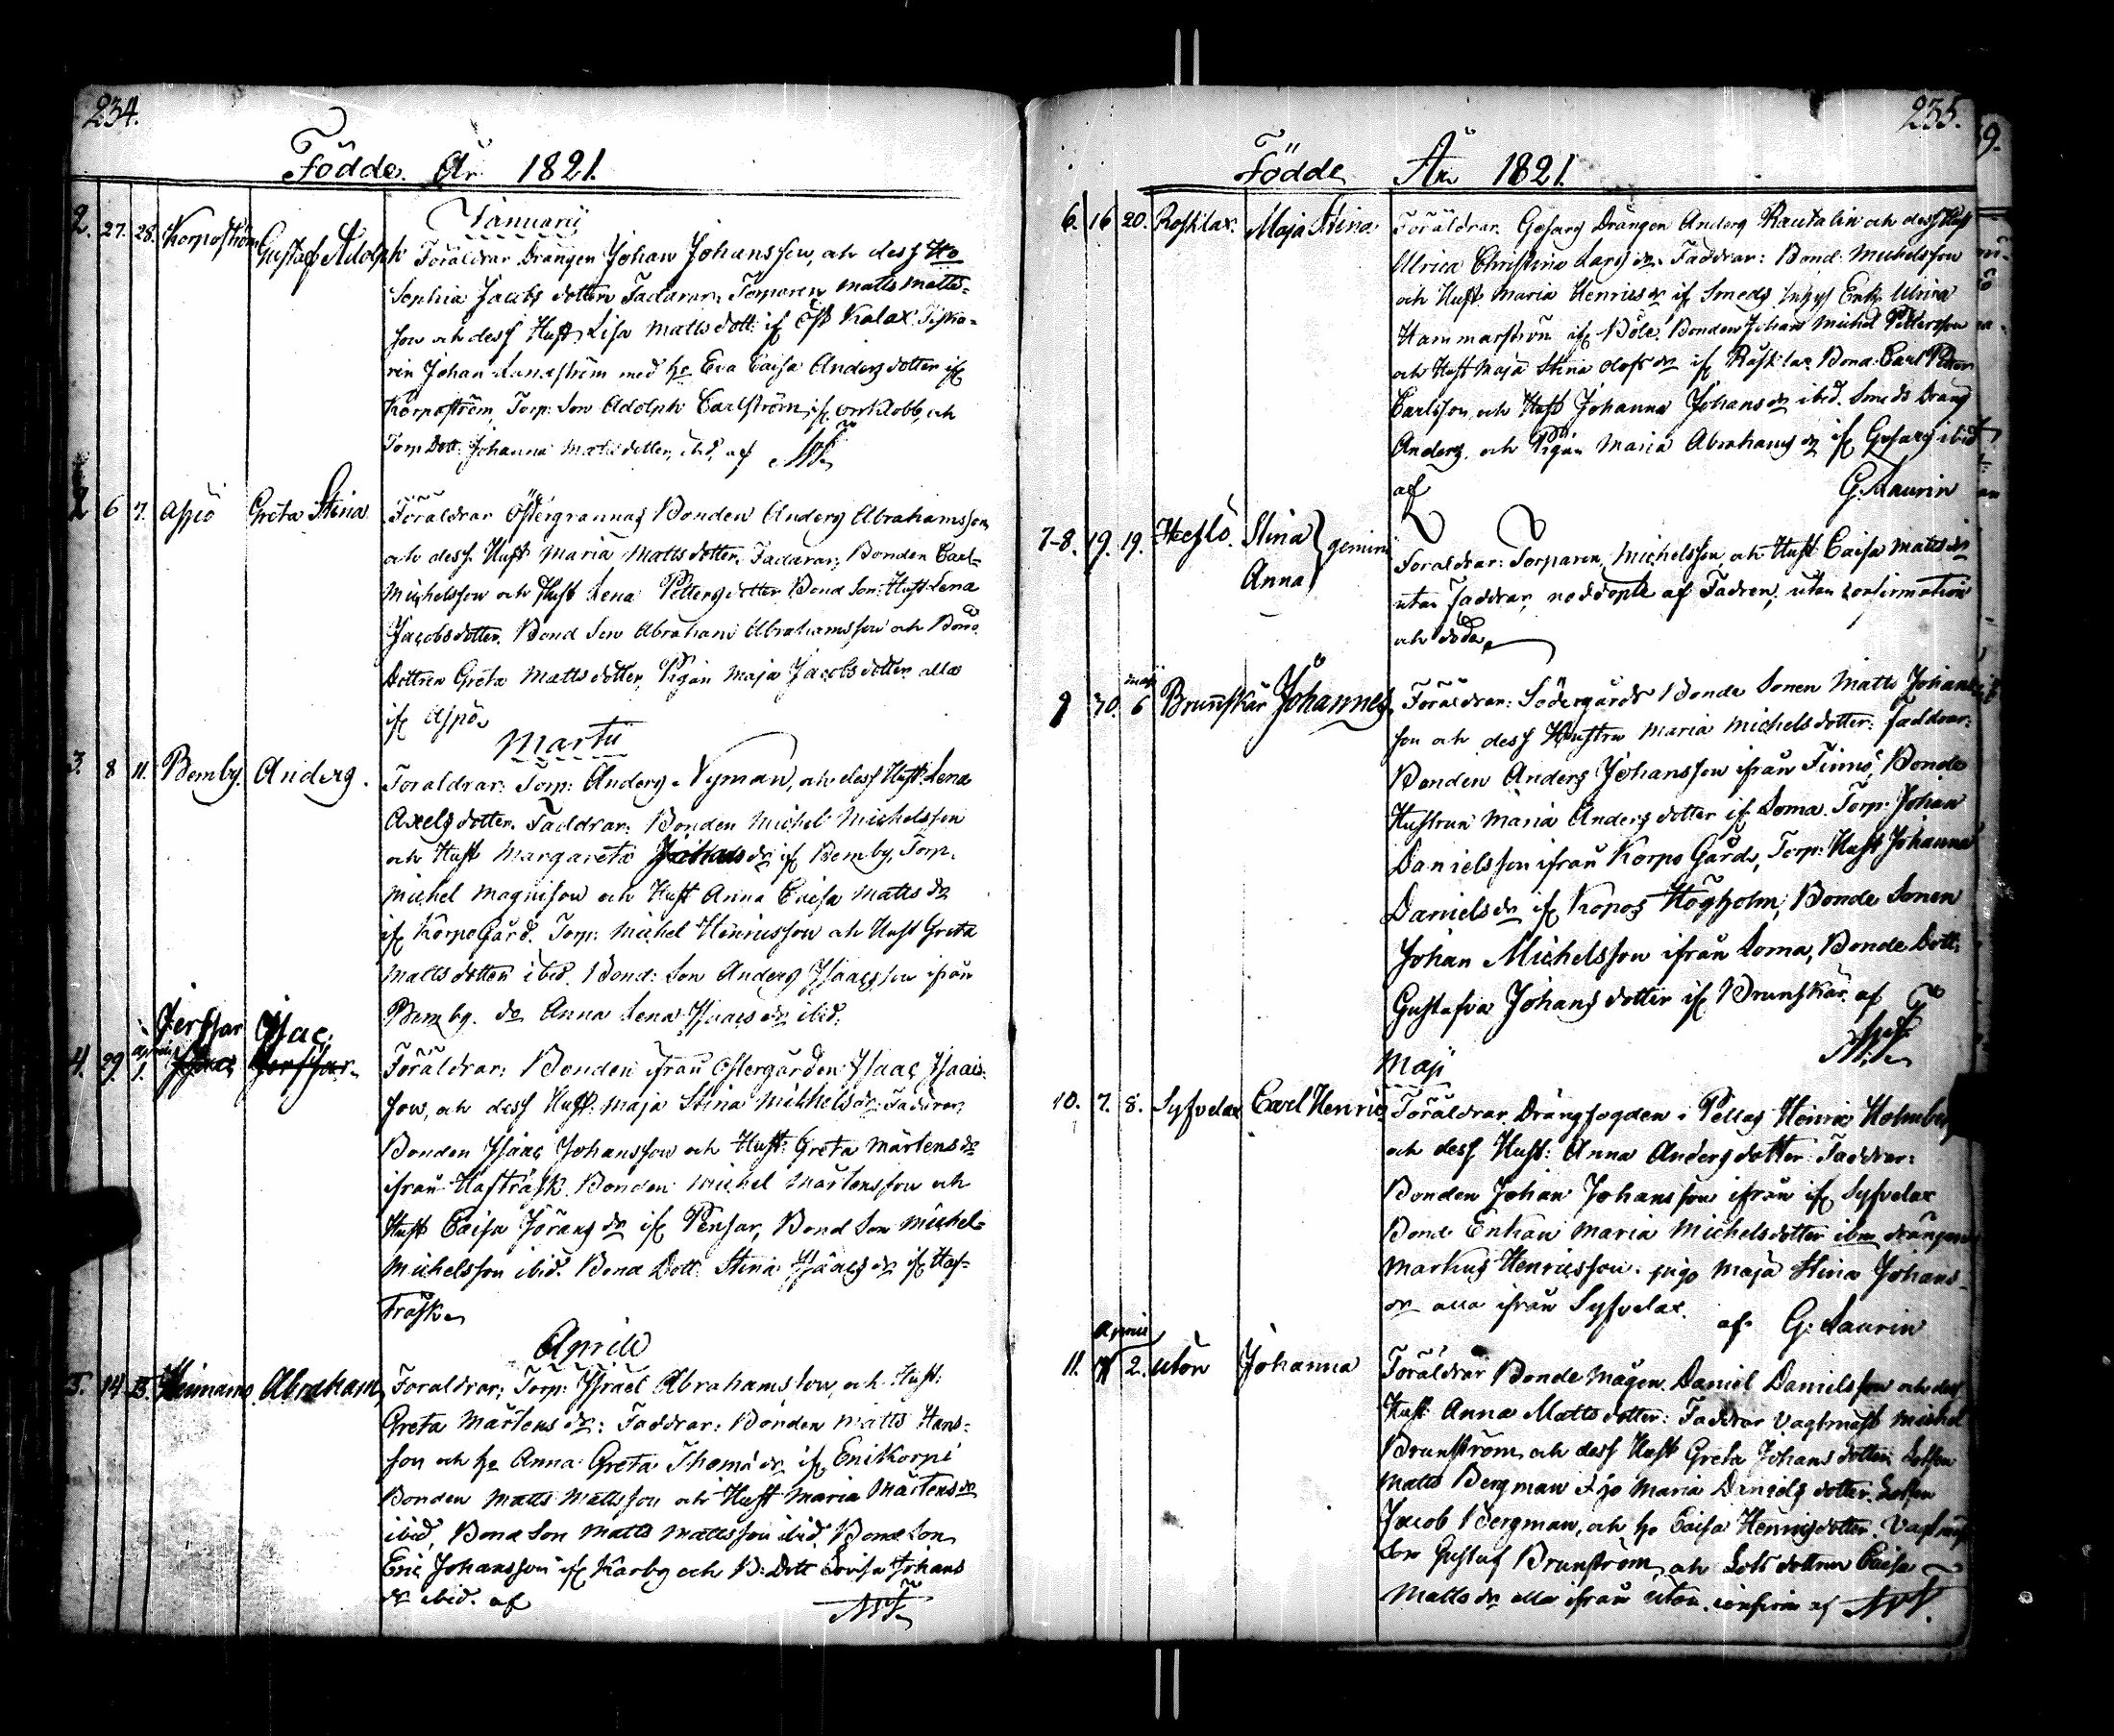 234.
Födde År 1821.
Januarii
2. 27. 28. Korpoström Gustaf Adolph Föräldrar Drängen Johan Johansson, och dess Ho
Sophia Jacobs dotter Faddrar: Torparen Matts Matts-
son och dess Hust. Lisa Matts dott: if Öst Kalax. Fiska-
rin Johan Lundström med ho Eva Caisa Anders dotter if
Korpoström, Torp: Son Adolph Carlström, if och
Torp Dott: Johanna Matts dotter, ibid, af
2 6 7. Aspö Greta Stina Föräldrar Östergrannas Bonden Anders Abrahamsson
och dess Hust Maria Mattsdotter. Faddrar: Bonden Carl
Michelsson och Hust Lena Petters dotter Bond Son: Hust Lena
Jacobs dotter. Bond Son Abraham Abrahamsson och Bond
Dottren Greta Matts dotter, Pigan Maja Jacobs dotter alla
if Aspö
Martii
3. 8 11. Bemby. Anders. Föräldrar: Torp: Anders Nyman, och dess Hust Lena
Axels dotter. Faddrar: Bonden Michel Michelsson
och Hust Margareta dr if Bemby, Torp.
Michel Magnisson och Hust Anna Caisa Matts dr
if Korpo Gård. Torp: Michel Hinricsson och Hust Greta
Matts dotter ibid. Bond: Son Anders Isaacsson ifrån
Bemby. do Anna Lena Isaacs dr ibid.
Jerssar Isac.
4. 29. 1. Jerssar. Föräldrar: Bonden ifrån Östergården Isaac Isaacs-
son, och dess Hust: Maja Stina Michels dr. Faddrar,
Bonden Isaac Johansson och Hust: Greta Mårtens dr
ifrån Hafträsk. Bonden Michel Mårtensson och
Hust Caisa Jörans dr if Pensar, Bond Son Michel
Michelsson ibid. Bond Dott: Stina Isaacs dr if Haf-
träsk
Aprill
5. 14. 15. Abraham, Föräldrar: Torp: Israel Abrahamsson, och Hust:
Greta Mårtens dr: Faddrar: Bonden Matts Hans-
son och ho Anna Greta Thoms dr if Enikorpi
Bonden Matts Mattsson och Hust Maria Mårtens dr
ibid, Bond Son Matts Mattsson ibid. Bond Son
Eric Johansson if Karby och B: Dott Lovisa Johans
dr ibid. af
235.
Födde År 1821.
6. 16 20. Rosklax. Maja Stina Föräldrar. Gofarg Drängen Anders Rautalin och dess Hust
Ulrica Christina Lars dr. Faddrar: Bond: Michelsson
och Hust Maria Henrics dr if Smeds Enk. Ulrica
Hammarström if Böle. Bonden Johan Michel Pettersson
och Hust Maja Stina Olofs dr if Rosklax Bond: Carl Petter
Carlsson och Hust Johanna Johans dr ibid. Smeds Dräng
Anders, och Pigan Maria Abrahams dr if ibid
af G. Laurin
7-8. 19. 19. Stina } gemini Föräldrar: Torparen, Michelsson, och Hust Caisa Matts dr
Anna utan Faddrar, nöddöpte af Fadren, utan confirmation
och döda
9 30. maji 6 Brunskär Johannes. Föräldrar: Södergårds Bonde Sonen Matts Johans-
son och dess Hustru Maria Michels dotter: Faddrar:
Bonden Anders Johansson ifrån Finnö, Bonde
Hustrun Maria Anders dotter if Loma. Torp: Johan
Danielsson ifrån Korpo Gård, Torp: Hust Johanna
Daniels dr if Kopos Högholm, Bonde Sonen
Johan Michelsson ifrån Loma, Bonde Dott:
Gustafva Johans dotter if Brunskär af
Maji
10. 7. 8. Syfvelax Carl Henric. Föräldrar Drängfogden i Pellas Henric Holmberg
och dess Hust: Anna Anders dotter Faddrar:
Bonden Johan Johansson ifrån if Syfvelax
Bond Enkan Maria Michelsdotter ibm drängen
Markus Henricsson. piga Maja Stina Johans-
dr alla ifrån Syfvelax. af G. Laurin
Aprill
11. 2. Utön Johanna Föräldrar Bonde Mågen. Daniel Danielsson och dess
Hust Anna Matts dotter: Faddrar Vagtmäst Michel
Brunström och dess Hust Greta Johans dotter Lotsen
Matts Bergman & ho Maria Daniels dotter. Lotsen
Jacob Bergman, och ho Caisa Henrics dotter. Vagtmäst
Son Gustaf Brunström och Lots dottren Caisa
Matts dr alla ifrån Utön. confirm af